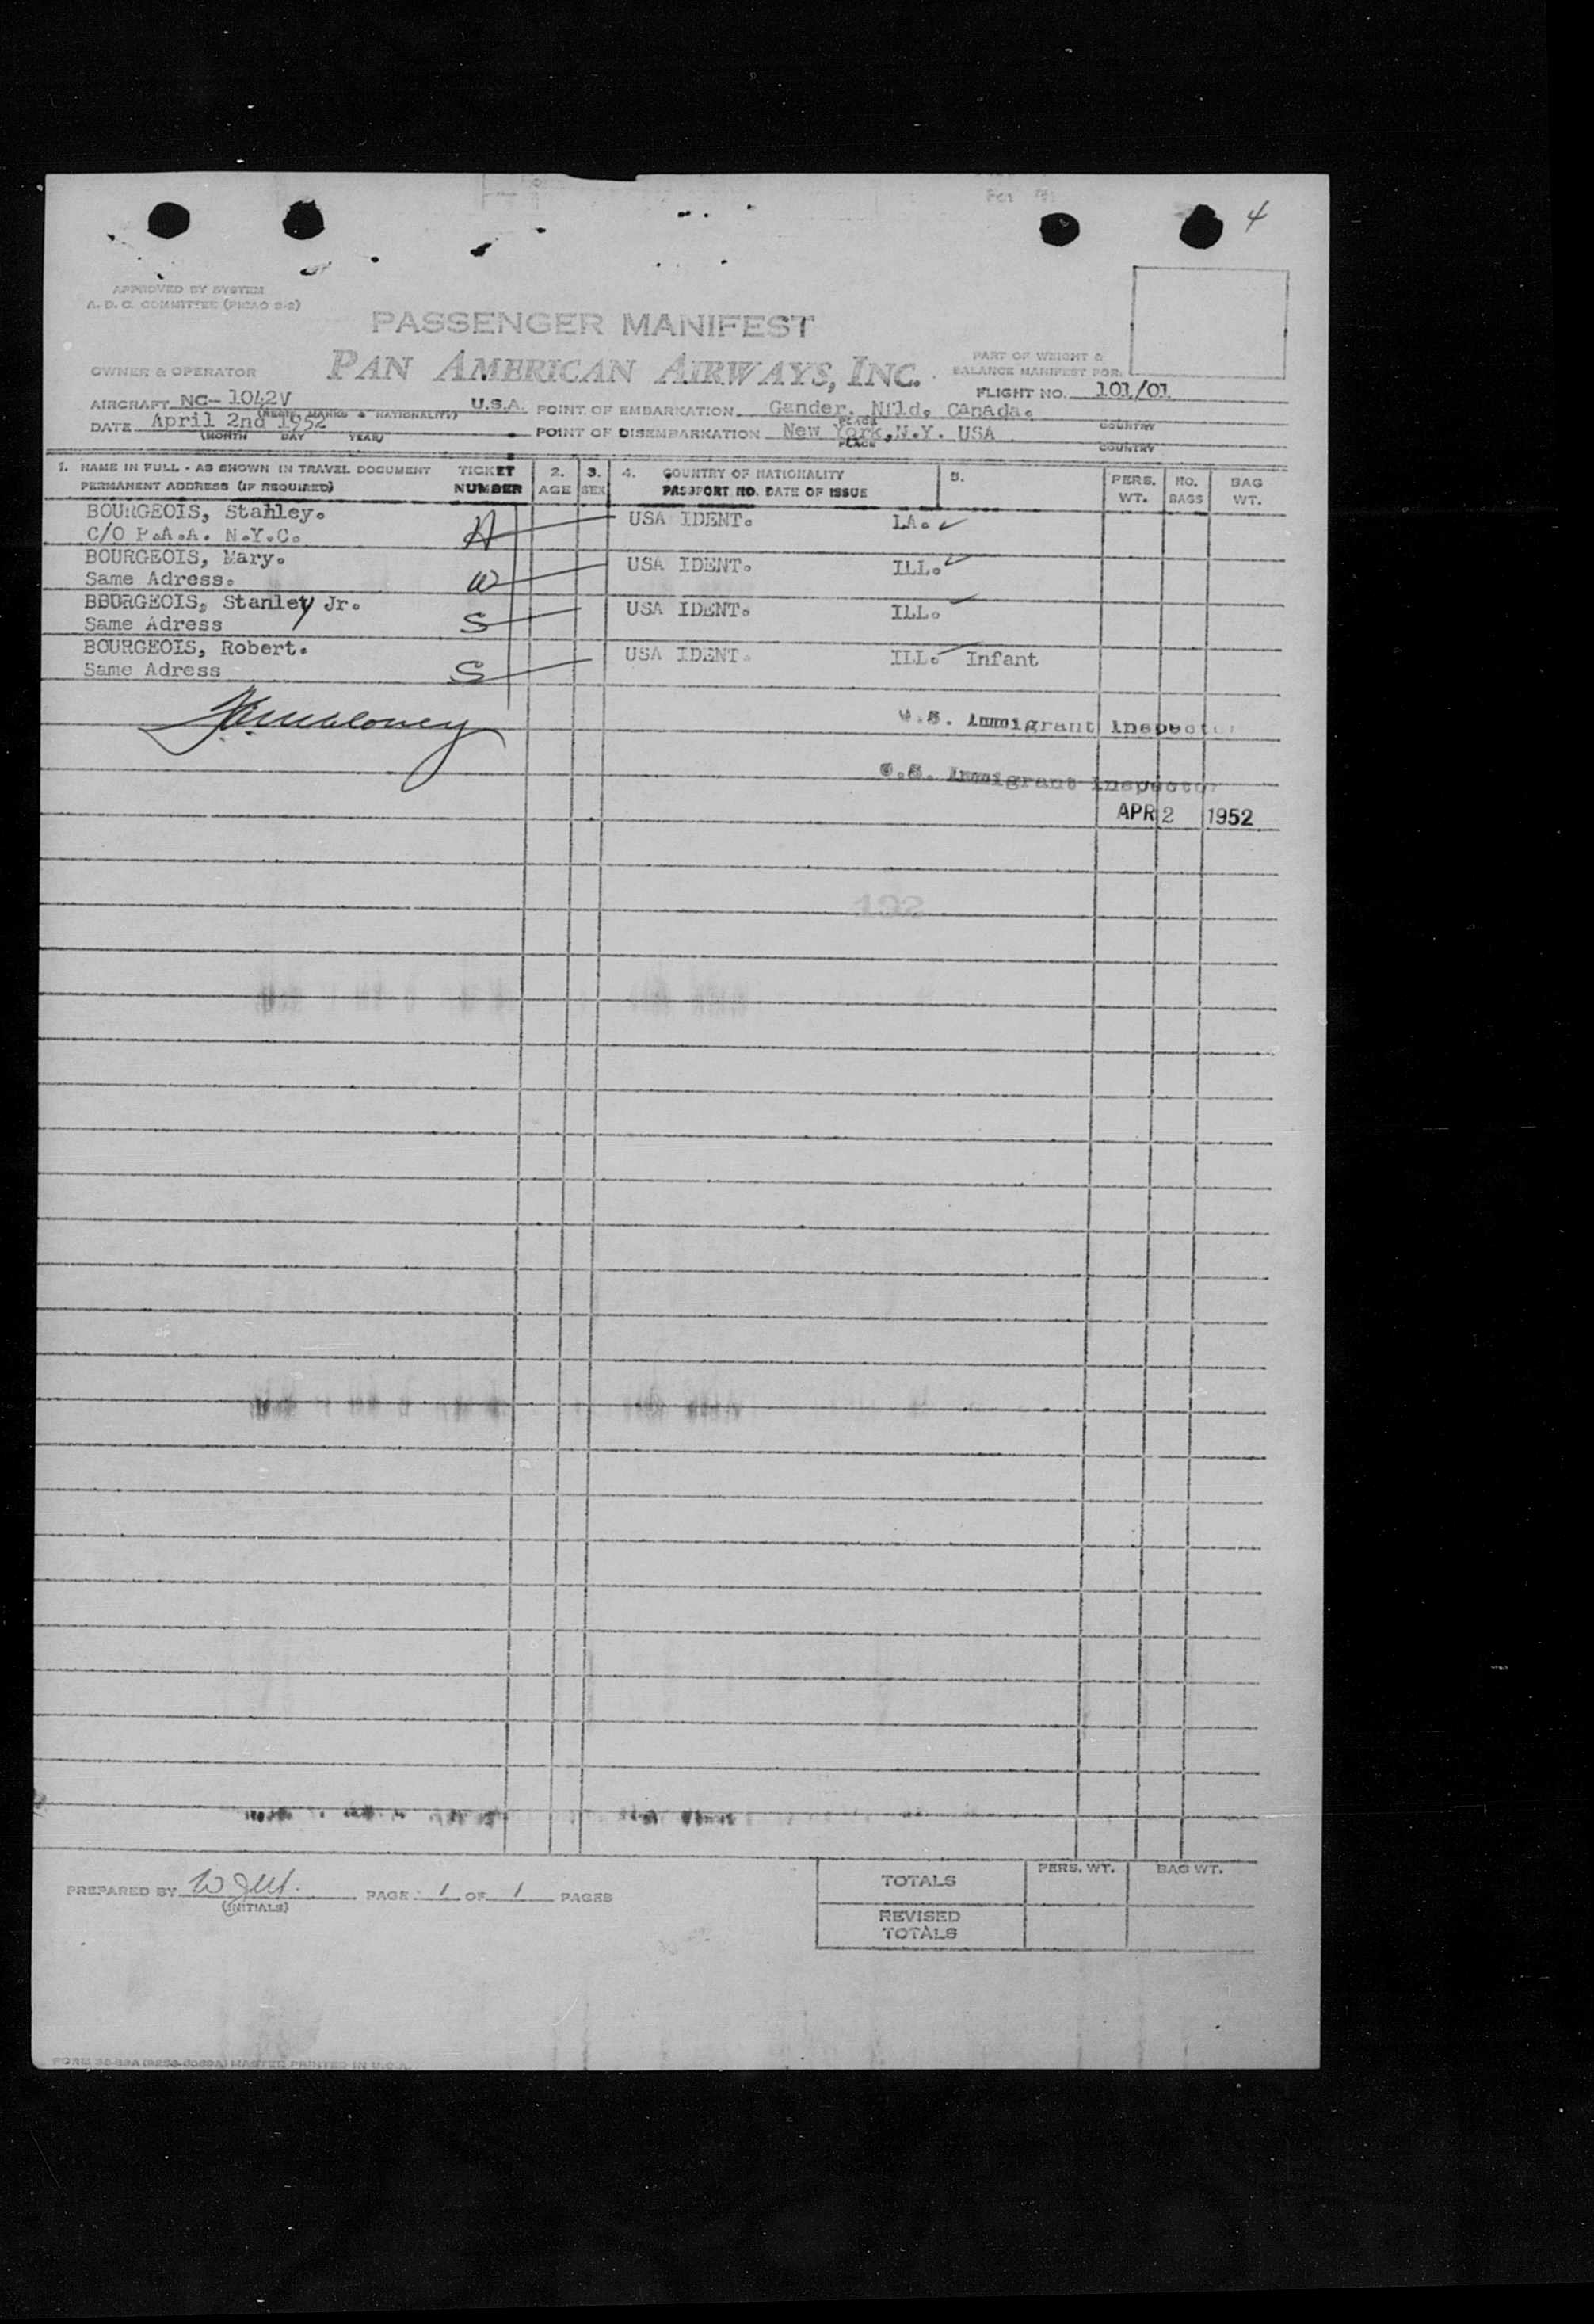 4
APPROVED BY SYSTEM
A. D. C. COMMITTEE (PICAO S-2)
PASSENGER MANIFEST
OWNER & OPERATOR PAN AMERICAN AIRWAYS, INC.
PART OF WEIGHT &
BALANCE MANIFEST FOR:
FLIGHT NO. 101/01
AIRCRAFT NC- 1042V U.S.A. POINT OF EMBARKATION Gander. Nfld. Canada.
(REGIS. MARKS & NATIONALITY) PLACE COUNTRY
DATE April 2nd 1952 POINT OF DISEMBARKATION New York, N.Y. USA
(MONTH DAY YEAR) PLACE COUNTRY
1. NAME IN FULL - AS SHOWN IN TRAVEL DOCUMENT TICKET 2. 3. 4. COUNTRY OF NATIONALITY 5. PERS. NO. BAG
PERMANENT ADDRESS (IF REQUIRED) NUMBER AGE SEX PASSPORT NO. DATE OF ISSUE WT. BAGS WT.
BOURGEOIS, Stanley. USA IDENT. LA.
C/O P.A.A. N.Y.C. H
BOURGEOIS, Mary. USA IDENT. ILL.
Same Adress. W
BBURGEOIS, Stanley Jr. USA IDENT. ILL.
Same Adress S
BOURGEOIS, Robert. USA IDENT. ILL. Infant
Same Adress S
U.S. Immigrant Inspector
U.S. Immigrant Inspector
APR 2 1952
132
PREPARED BY PAGE 1 OF 1 PAGES
(INITIALS)
TOTALS PERS. WT. BAG WT.
REVISED
TOTALS